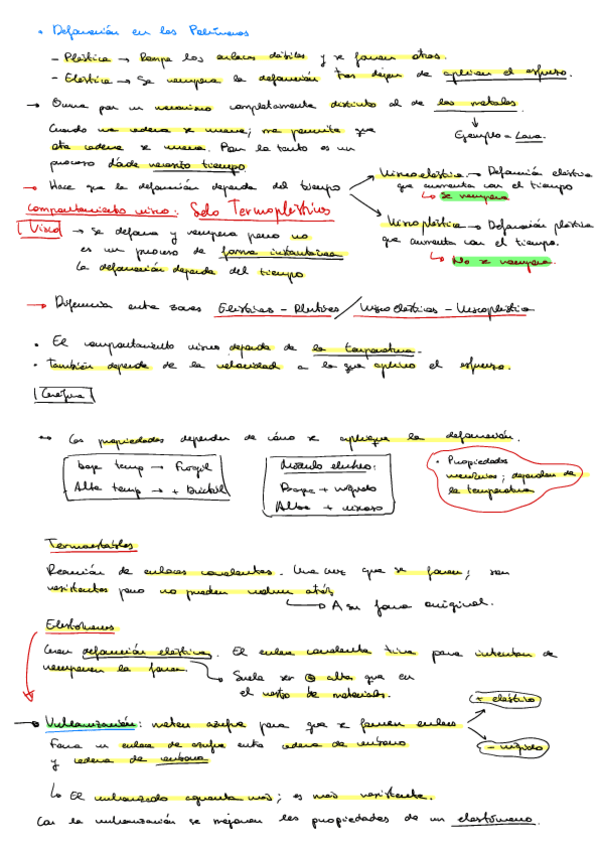 • Deformación en los Polímeros
- Plástica → Rompe los enlaces débiles y se forman otros.
- Elástica → Se recupera la deformación tras dejar de aplicar el esfuerzo.
→ Ocurre por un mecanismo completamente distinto al de los metales.
Cuando una cadena se mueve; me permite que
otra cadena se mueva. Por lo tanto es un
proceso dónde necesito tiempo.
Ejemplo = Lava.
→ Hace que la deformación dependa del tiempo
Viscoelástica → Deformación elástica
que aumenta con el tiempo
↳ Se recupera
Viscoplástica → Deformación plástica
que aumenta con el tiempo.
↳ No se recupera.
Comportamiento viscoso: Solo Termoplásticos
Visco → Se deforma y recupera pero no
es un proceso de forma instantánea
La deformación depende del tiempo
→ Diferencia entre zonas Elásticas - Plásticas / Viscoelásticas - Viscoplástica
• El comportamiento viscoso depende de la temperatura.
• También depende de la velocidad a la que aplico el esfuerzo.
→ Las propiedades dependen de cómo se aplique la deformación.
baja temp → Frágil
Alta temp → + Dúctil
Módulo elástico:
Bajo + rígido
Alto + viscoso
• Propiedades
mecánicas; dependen de
la temperatura
Termoestables
Reacción de enlaces covalentes. Una vez que se forman; son
resistentes pero no pueden volver atrás
→ A su forma original.
Elastómeros
Gran deformación elástica. El enlace covalente tira para intentar de
recuperar la forma.
Suele ser alta que en
el resto de materiales.
→ Vulcanización: meten azufre para que se formen enlaces
+ elástico
- rígido
Forma un enlace de azufre entre cadena de carbono
y cadena de carbono
↳ El vulcanizado aguanta más; es más resistente.
Con la vulcanización se mejoran las propiedades de un elastómero.